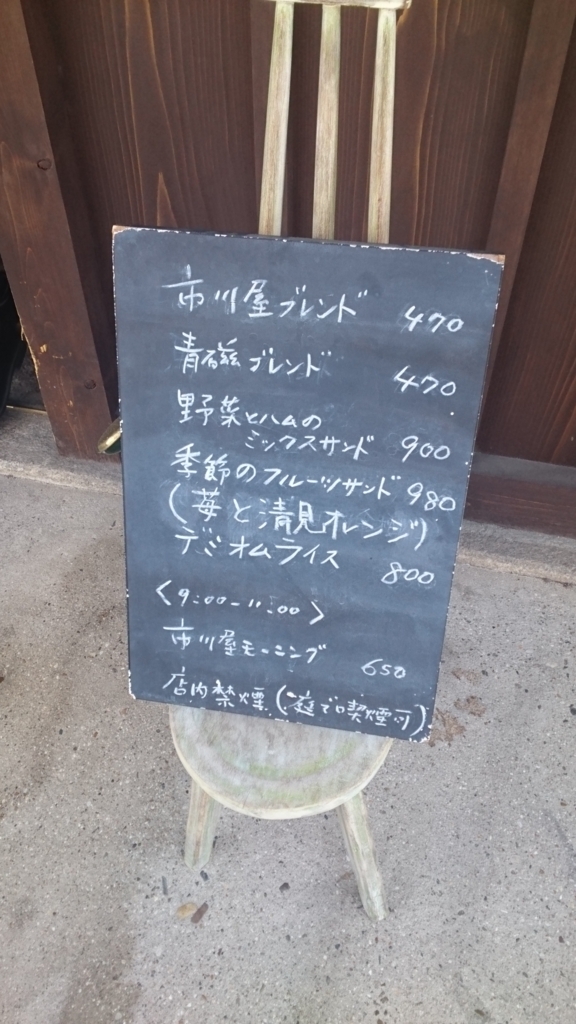 市川屋ブレンド 470
青磁ブレンド 470
野菜とハムの
ミックスサンド 900
季節のフルーツサンド 980
(苺と清見オレンジ)
デミオムライス 800
〈9:00-11:00〉
市川屋モーニング 650
店内禁煙(庭で喫煙可)